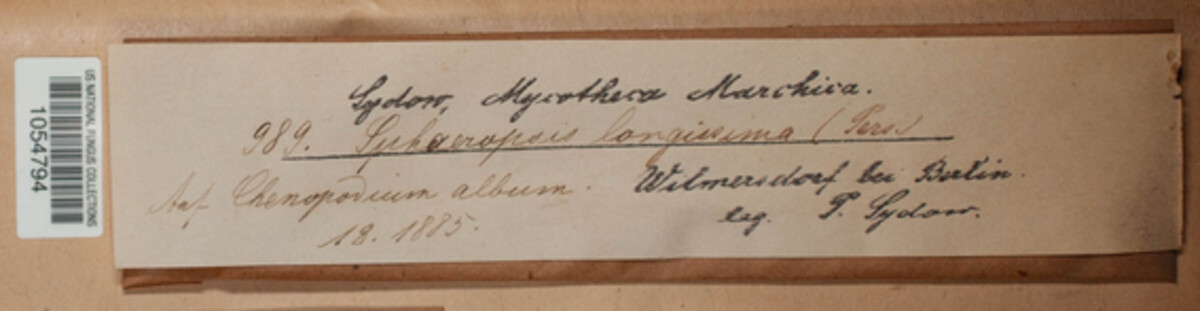 Sydow, Mycotheca Marchica.
989. Sphaeropsis longissima (Pers.)
Auf Chenopodium album. Wilmersdorf bei Berlin.
18. 1885. leg. P. Sydow.
US NATIONAL FUNGUS COLLECTIONS
1054794